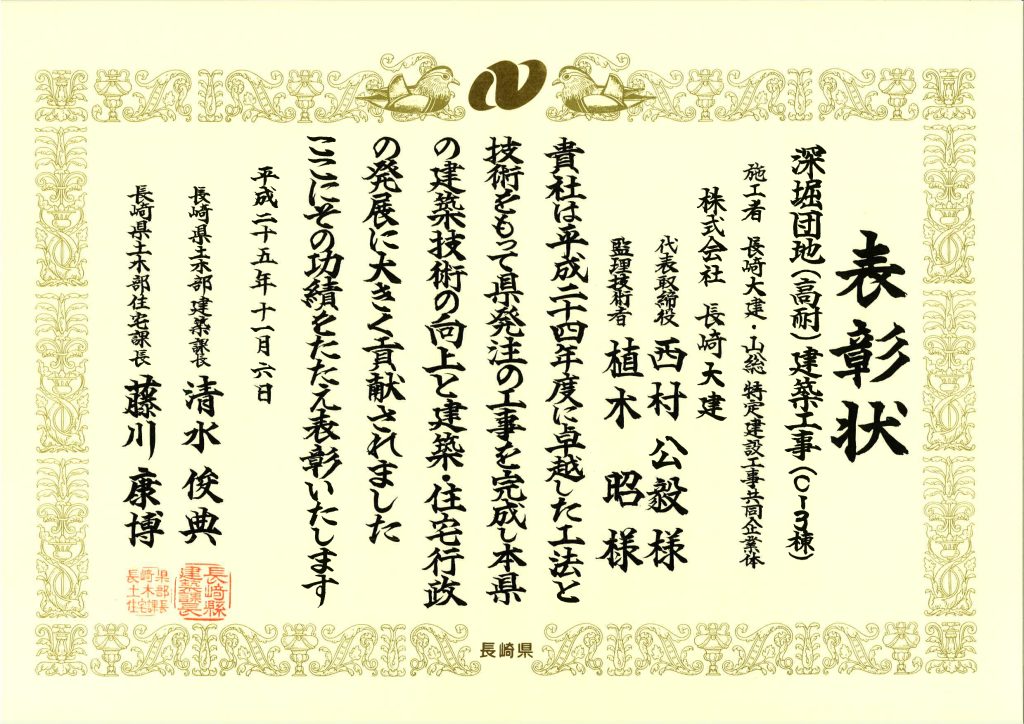 表彰状
深堀団地(高耐)建築工事(C-3棟)
施工者 長崎大建・山総 特定建設工事共同企業体
株式会社 長崎大建
代表取締役 西村公毅様
監理技術者 植木昭様
貴社は平成二十四年度に卓越した工法と
技術をもって県発注の工事を完成し本県
の建築技術の向上と建築・住宅行政
の発展に大きく貢献されました
ここにその功績をたたえ表彰いたします
平成二十五年十一月六日
長崎県土木部建築課長 清水俊典
長崎県土木部住宅課長 藤川康博
長崎縣建築課長
長崎県土木部住宅課長
長崎県